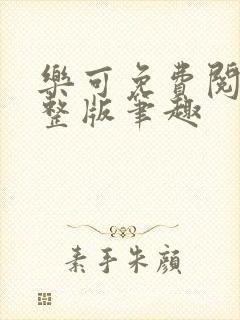 樂可免費閱
整版筆趣
素手朱顏